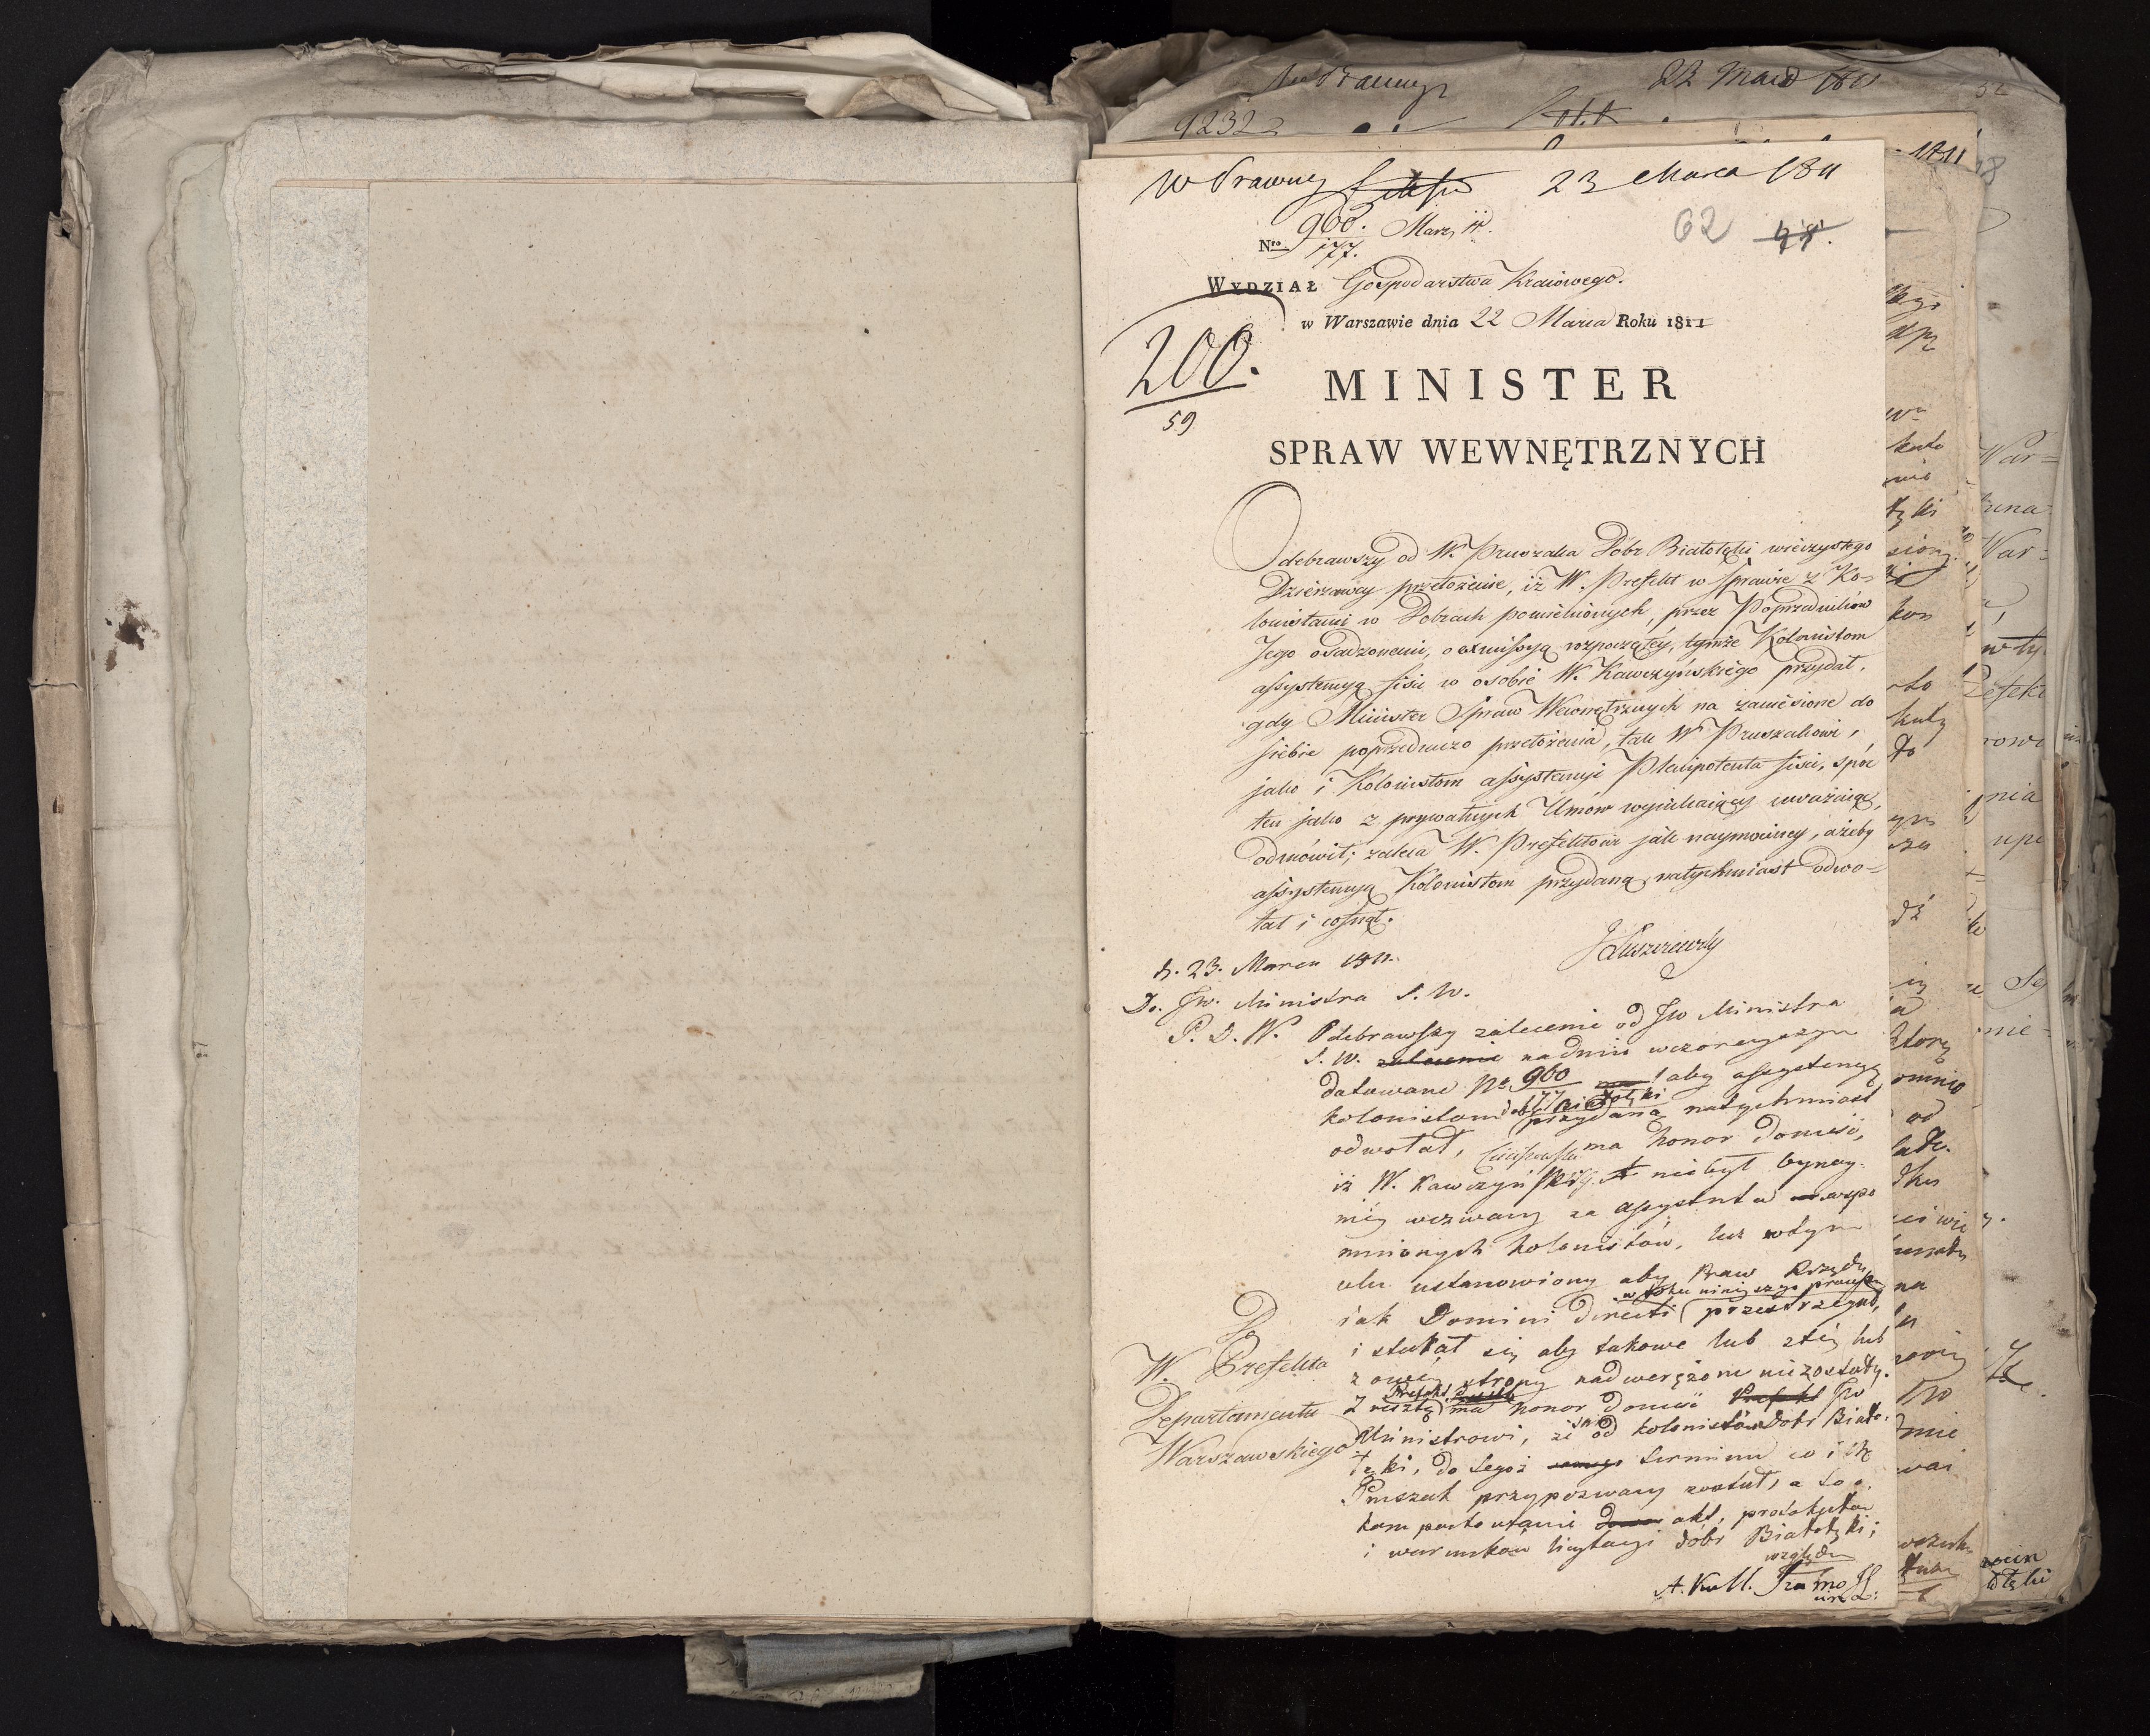 23 Marca 1811
62
Nro 960. Marz, 11.
177.
WYDZIAŁ Gospodarstwa Kraiowego.
w Warszawie dnia 22 Marca Roku 1811
200.
59
MINISTER
SPRAW WEWNĘTRZNYCH
Odebrawszy od W. Pruszaka Dóbr Białołęki wieczystego
Dzierżawcy przełożenie, iż W. Prefekt w sprawie z Ko-
lonistami w Dobrach pomienionych, przez Poprzedników
Jego osadzonemi, o exmissyą rozpoczętéy, tymże Kolonistom
assystencyą fisci w osobie W. Kawczyńskiego przydał,
gdy Minister Spraw Wewnętrznych na zaniesione do
siebie poprzedniczo przełożenia, tak W Pruszakowi,
jako i Kolonistom assystencyi Plenipotenta fisci, spór
ten jako z prywatnych Umów wynikaiący uważaiąc,
odmówił; zaleca W. Prefektowi jak naymocniey, ażeby
assystencyą Kolonistom przydaną natychmiast odwo-
łał i cofnął.
JŁuszczewski
d. 23. Marca 1811.
Do JW. Ministra S. W.
P. D. W. Odebrawszy zalecenie od JW Ministra
S. W. zalecenie na dniu wczorayszym
datowane No 960/177 aby assystencyą
kolonistom dóbr Białołęki przydaną natychmiast
odwołał, ma honor donieść,
iż W. Kawczyński nie był bynay-
mniey wezwany za assystenta wspo
mnionych kolonistów, lecz w tym
celu ustanowiony aby Praw Rządu
w toku ninieyszego processu
jak Domini directi przestrzegał,
i starał się aby takowe lub z téy lub
z owéy strony nadwerężone nie zostały.
Z resztą Prefekt ma honor donieść JW
Ministrowi, że od kolonistów Dóbr Biało-
łęki, do tegoż terminu co i W
Pruszak przypozwany został, a to
kom portowania akt, protokułów
i warunków licytacyi dóbr Białołęki;
względem
W. Prefekta
Departamentu
Warszawskiego